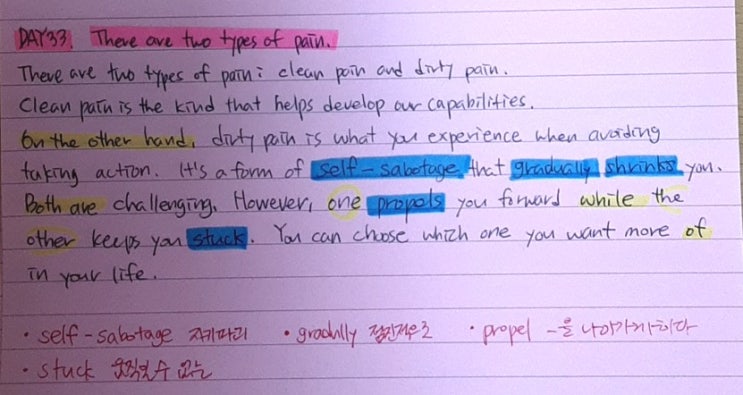 DAY33. There are two types of pain.
There are two types of pain : clean pain and dirty pain.
Clean pain is the kind that helps develop our capabilities.
On the other hand, dirty pain is what you experience when avoiding
taking action. It's a form of self-sabotage that gradually shrinks you.
Both are challenging. However, one propels you forward while the
other keeps you stuck. You can choose which one you want more of
in your life.
• self-sabotage 자기파괴 • gradully 점진적으로 • propel ~을 나아가게하다
• stuck 움직일 수 없는